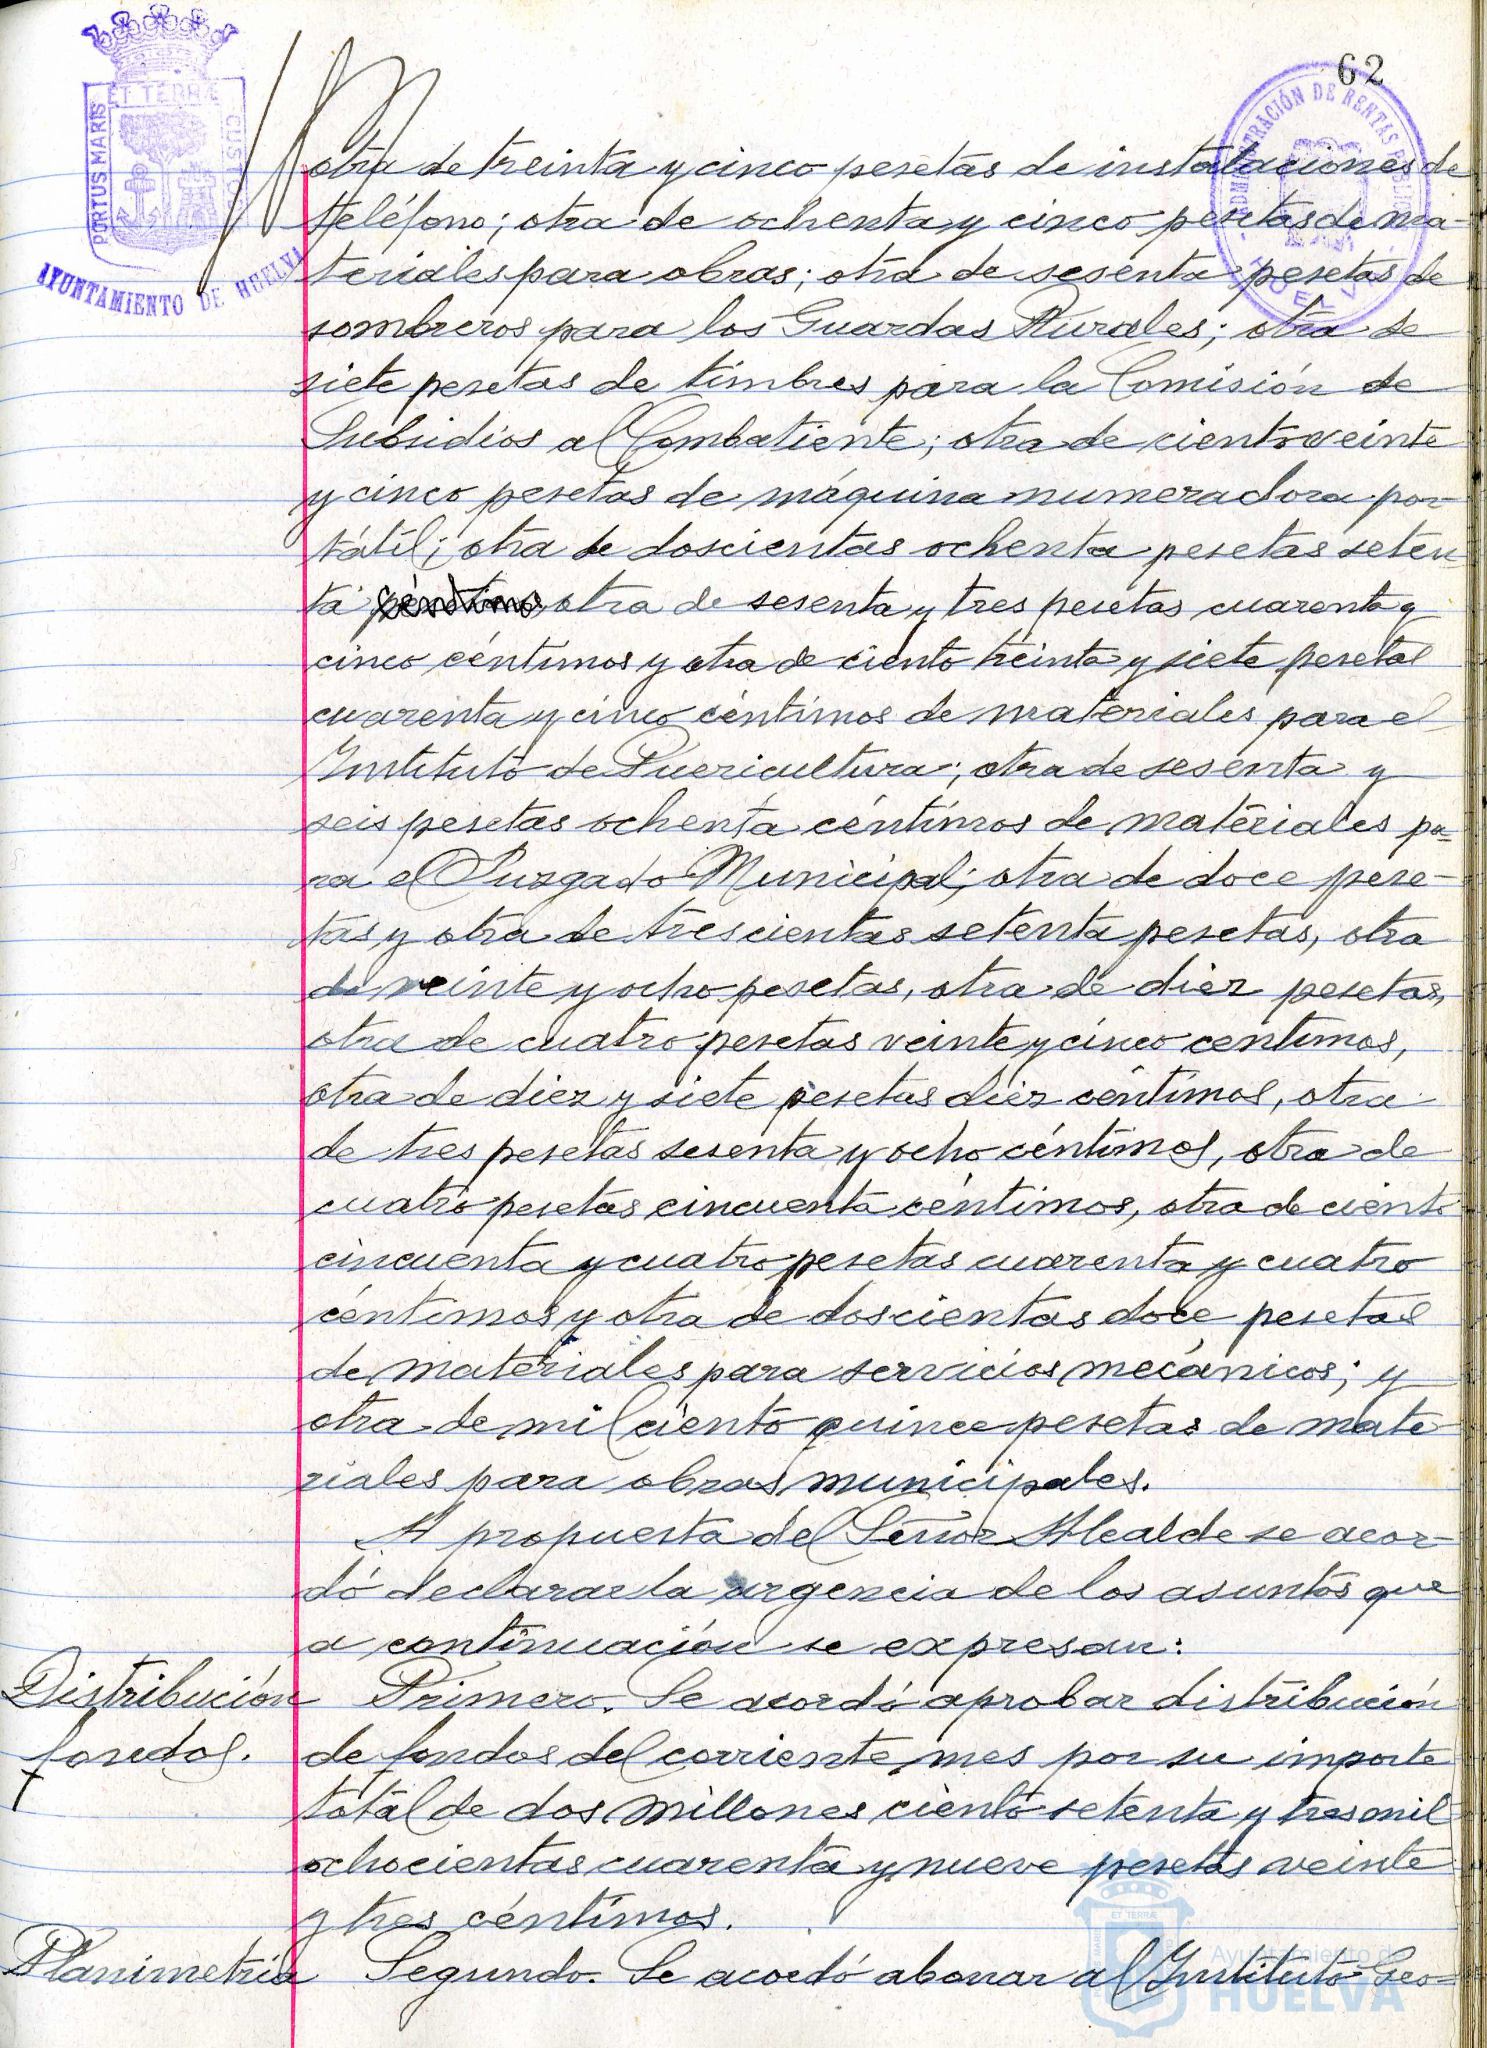 62
PORTUS MARIS
ET TERRÆ
CUSTO
AYUNTAMIENTO DE HUELVA
ADMINISTRACIÓN DE RENTAS PUBLICAS
HUELVA
otra de treinta y cinco pesetas de instalaciones de
teléfono; otra de ochenta y cinco pesetas de ma-
teriales para obras; otra de sesenta pesetas de
sombreros para los Guardas Rurales; otra de
siete pesetas de timbres para la Comisión de
Subsidios al Combatiente; otra de ciento veinte
y cinco pesetas de máquina numeradora por-
tátil; otra de doscientas ochenta pesetas seten-
ta céntimos, otra de sesenta y tres pesetas cuarenta y
cinco céntimos y otra de ciento treinta y siete pesetas
cuarenta y cinco céntimos de materiales para el
Instituto de Puericultura; otra de sesenta y
seis pesetas ochenta céntimos de materiales pa-
ra el Juzgado Municipal; otra de doce pese-
tas y otra de trescientas setenta pesetas, otra
de veinte y ocho pesetas, otra de diez pesetas,
otra de cuatro pesetas veinte y cinco centimos,
otra de diez y siete pesetas diez céntimos, otra
de tres pesetas sesenta y ocho céntimos, otra de
cuatro pesetas cincuenta céntimos, otra de ciento
cincuenta y cuatro pesetas cuarenta y cuatro
céntimos y otra de doscientas doce pesetas
de materiales para servicios mecánicos; y
otra de mil ciento quince pesetas de mate-
riales para obras municipales.
A propuesta del Señor Alcalde se acor-
dó declarar la urgencia de los asuntos que
a continuación se expresan:
Distribución Primero. Se acordó aprobar distribución
fondos. de fondos del corriente mes por su importe
total de dos millones ciento setenta y tres mil
ochocientas cuarenta y nueve pesetas veinte
y tres céntimos.
Planimetria Segundo. Se acordó abonar al Instituto Geo-
ET TERRÆ
Ayuntamiento de
HUELVA